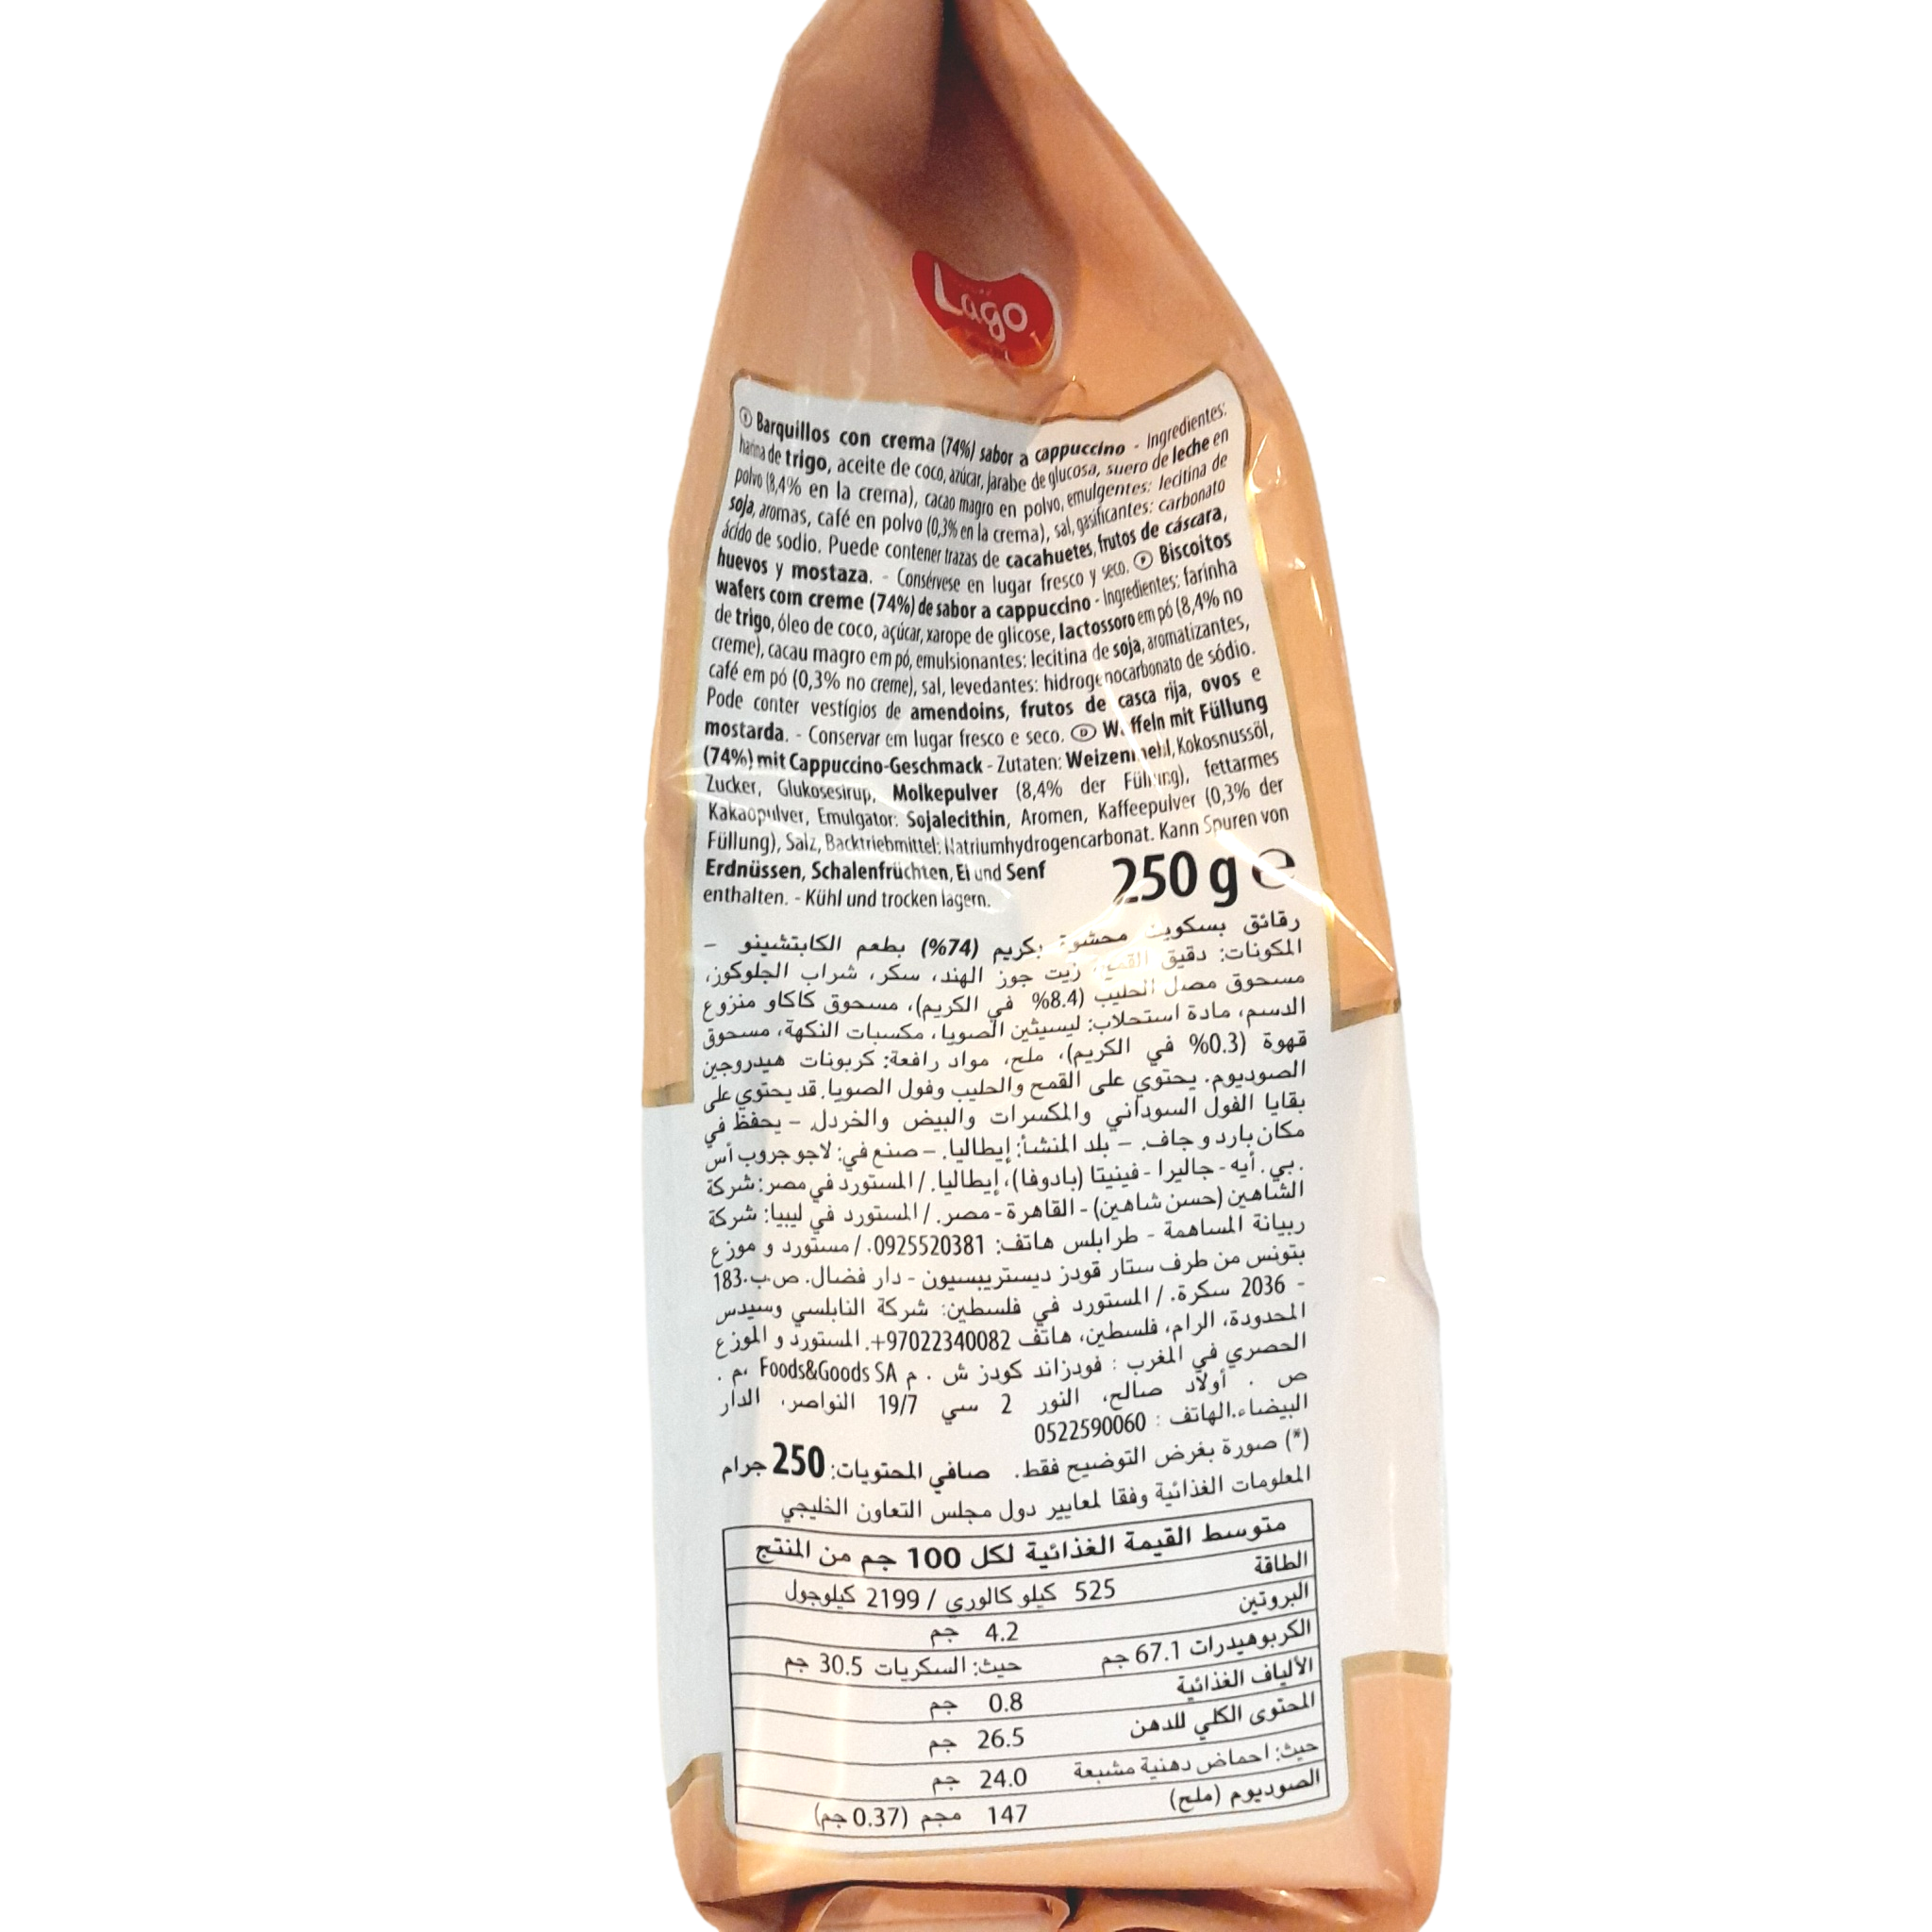 Lago
E Barquillos con crema (74%) sabor a cappuccino - Ingredientes:
harina de trigo, aceite de coco, azúcar, jarabe de glucosa, suero de leche en
polvo (8,4% en la crema), cacao magro en polvo, emulgentes: lecitina de
soja, aromas, café en polvo (0,3% en la crema), sal, gasificantes: carbonato
ácido de sodio. Puede contener trazas de cacahuetes, frutos de cáscara,
huevos y mostaza. - Consérvese en lugar fresco y seco. P Biscoitos
wafers com creme (74%) de sabor a cappuccino - Ingredientes: farinha
de trigo, óleo de coco, açúcar, xarope de glicose, lactossoro em pó (8,4% no
creme), cacau magro em pó, emulsionantes: lecitina de soja, aromatizantes,
café em pó (0,3% no creme), sal, levedantes: hidrogenocarbonato de sódio.
Pode conter vestígios de amendoins, frutos de casca rija, ovos e
mostarda. - Conservar em lugar fresco e seco. D Waffeln mit Füllung
(74%) mit Cappuccino-Geschmack - Zutaten: Weizenmehl, Kokosnussöl,
Zucker, Glukosesirup, Molkepulver (8,4% der Füllung), fettarmes
Kakaopulver, Emulgator: Sojalecithin, Aromen, Kaffeepulver (0,3% der
Füllung), Salz, Backtriebmittel: Natriumhydrogencarbonat. Kann Spuren von
Erdnüssen, Schalenfrüchten, Ei und Senf
enthalten. - Kühl und trocken lagern.
250 g ℮
رقائق بسكويت محشوة بكريم (74%) بطعم الكابتشينو –
المكونات: دقيق القمح، زيت جوز الهند، سكر، شراب الجلوكوز،
مسحوق مصل الحليب (8.4% في الكريم)، مسحوق كاكاو منزوع
الدسم، مادة استحلاب: ليسيثين الصويا، مكسبات النكهة، مسحوق
قهوة (0.3% في الكريم)، ملح، مواد رافعة: كربونات هيدروجين
الصوديوم. يحتوي على القمح والحليب وفول الصويا. قد يحتوي على
بقايا الفول السوداني والمكسرات والبيض والخردل. – يحفظ في
مكان بارد و جاف. – بلد المنشأ: إيطاليا. – صنع في: لاجو جروب أس
.بي. أيه - جاليرا - فينيتا (بادوفا)، إيطاليا. / المستورد في مصر: شركة
الشاهين (حسن شاهين) - القاهرة - مصر. / المستورد في ليبيا: شركة
ربيانة المساهمة - طرابلس هاتف: 0925520381. / مستورد و موزع
بتونس من طرف ستار قودز ديستريبسيون - دار فضال. ص.ب.183
- 2036 سكرة. / المستورد في فلسطين: شركة النابلسي وسيدس
المحدودة، الرام، فلسطين، هاتف 97022340082+. المستورد و الموزع
الحصري في المغرب : فودزاند كودز ش . م Foods&Goods SA ،م .
ص . أولاد صالح، النور 2 سي 19/7 النواصر، الدار
البيضاء.الهاتف : 0522590060
(*) صورة بغرض التوضيح فقط. صافي المحتويات: 250 جرام
المعلومات الغذائية وفقا لمعايير دول مجلس التعاون الخليجي
متوسط القيمة الغذائية لكل 100 جم من المنتج
الطاقة 525 كيلو كالوري / 2199 كيلوجول
البروتين 4.2 جم
الكربوهيدرات 67.1 جم حيث: السكريات 30.5 جم
الألياف الغذائية 0.8 جم
المحتوى الكلي للدهن 26.5 جم
حيث: احماض دهنية مشبعة 24.0 جم
الصوديوم (ملح) 147 مجم (0.37 جم)